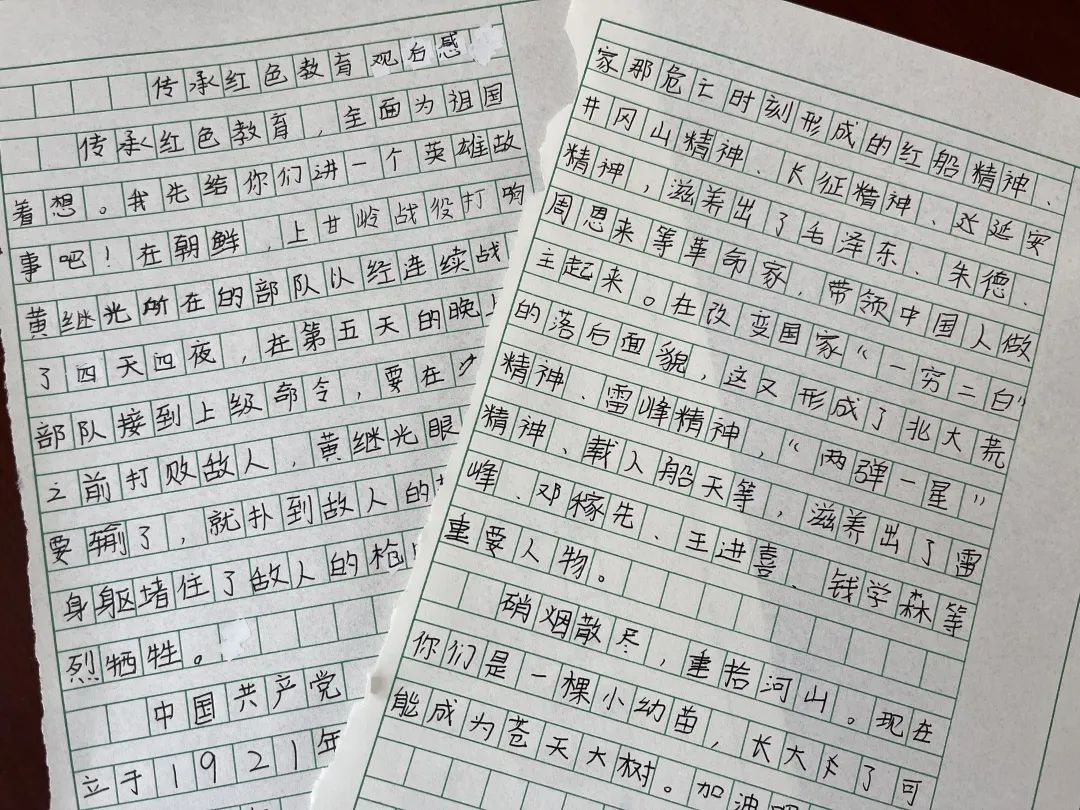 传承红色教育观后感
传承红色教育，全面为祖国
着想。我先给你们讲一个英雄故
事吧！在朝鲜，上甘岭战役打响
黄继光所在的部队以经连续战
了四天四夜，在第五天的晚上
部队接到上级命令，要在
之前打败敌人，黄继光眼
要输了，就扑到敌人的
身躯堵住了敌人的枪
烈牺牲。
中国共产党
立于1921年
家那危亡时刻形成的红船精神、
井冈山精神、长征精神、延安
精神，滋养出了毛泽东、朱德、
周恩来等革命家，带领中国人做
主起来。在改变国家“一穷二白”
的落后面貌，这又形成了北大荒
精神、雷峰精神，“两弹一星”
精神、载人船天等，滋养出了雷
峰、邓稼先、王进喜、钱学森等
重要人物。
硝烟散尽，重拾河山。现在
你们是一棵小幼苗，长大了可
能成为苍天大树。加油吧